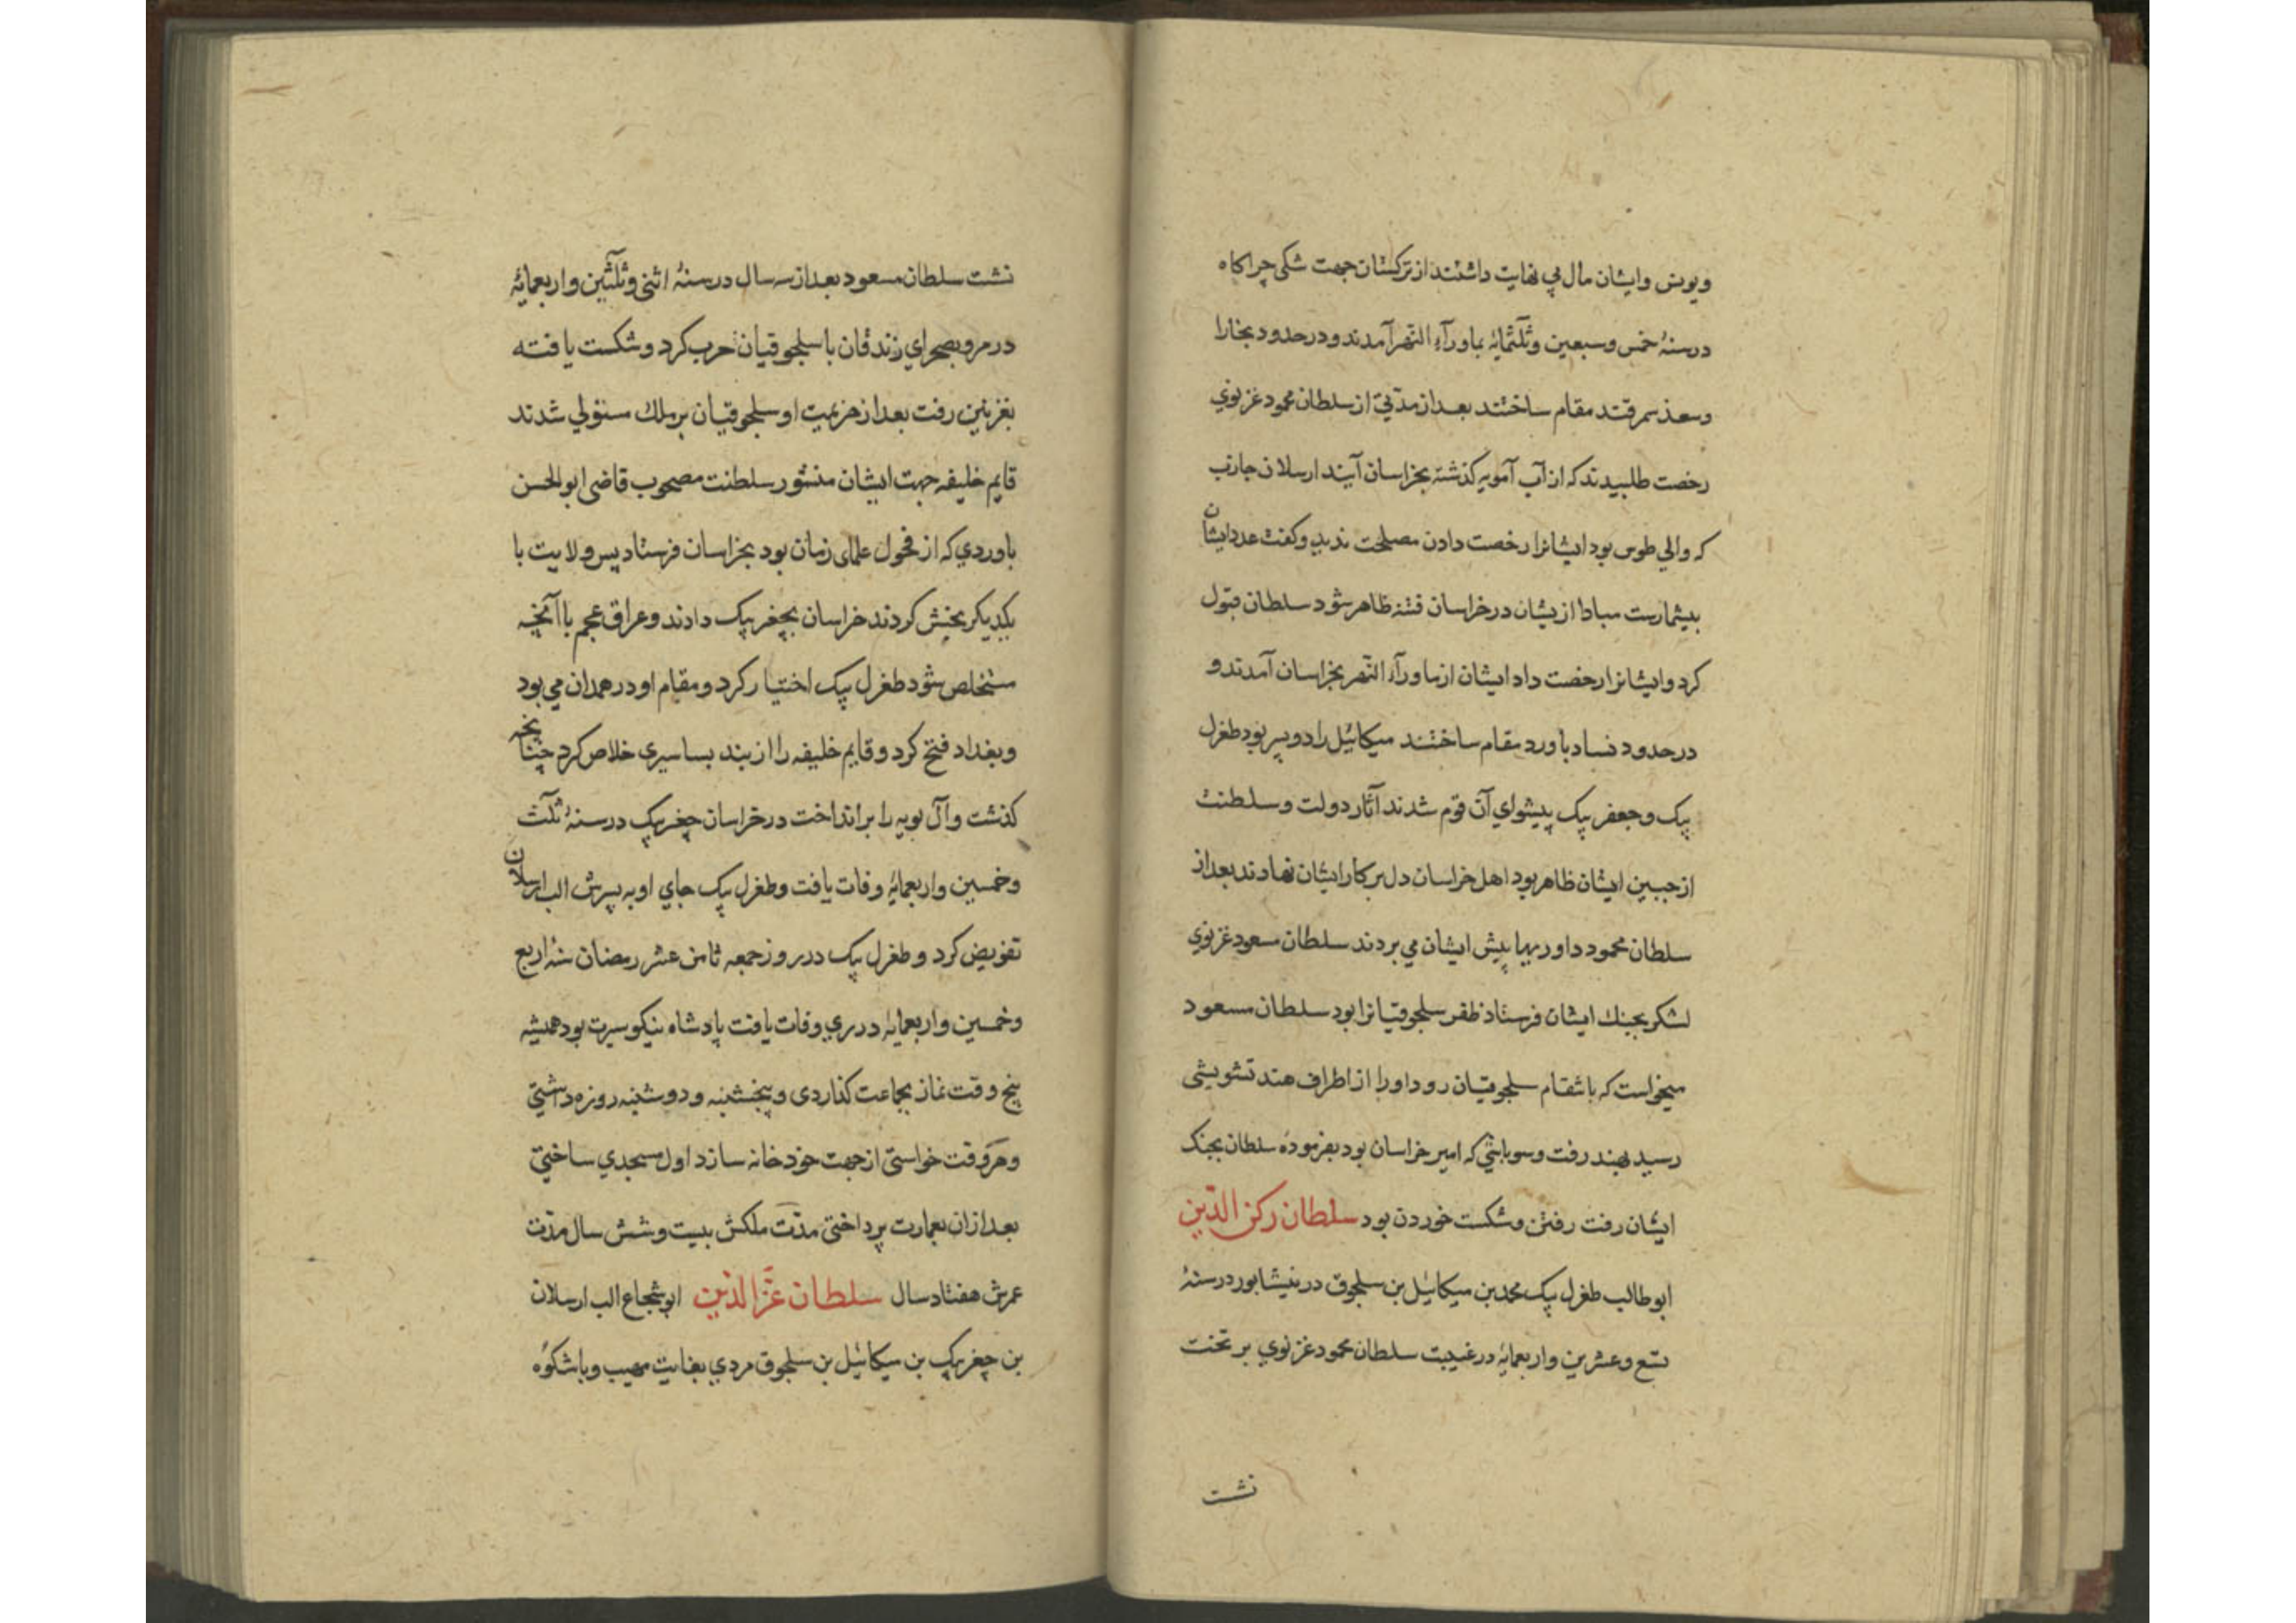 ویونس وایشان مال بی نهایت داشتند از ترکستان جهت تنکی چراکاه
درسنهٔ خمس وسبعین وثلثمایهٔ بماورآء النهر آمدند ودرحدود بخارا
وسغد سمرقند مقام ساختند بعد از مدّتی از سلطان محمود غزنوی
رخصت طلبیدند که از آب آمویه کذشته بخراسان آیند ارسلان جاذب
که والی طوس بود ایشانرا رخصت دادن مصلحت ندید وکفت عدد ایشان
بیشمارست مبادا ازیشان درخراسان فتنه ظاهر شود سلطان قبول
کرد وایشانرا رخصت داد ایشان ازماورآء النهر بخراسان آمدند و
درحدود نساد باورد مقام ساختند میکائیل را دو پسر بود طغرل
پیک وجعفر پیک پیشوای آن قوم شدند آثار دولت وسلطنت
از جبین ایشان ظاهر بود اهل خراسان دل برکار ایشان نهادند بعد از
سلطان محمود داوریها پیش ایشان می بردند سلطان مسعود غزنوی
لشکر بجنك ایشان فرستاد ظفر سلجوقیانرا بود سلطان مسعود
میخواست که بانتقام سلجوقیان رود اورا از اطراف هند تشویشی
رسید بهند رفت وسوباشی که امیر خراسان بود بفرموده سلطان بجنک
ایشان رفت رفتن وشکست خوردن بود سلطان رکن الدّین
ابوطالب طغرل پیک محمد بن میکائیل بن سلجوق درنیشابور درسنهٔ
تسع وعشرین واربعمایهٔ درغیبت سلطان محمود غزنوی بر تخت
نشت
نشت سلطان مسعود بعد از سه سال درسنهٔ اثنی وثلثین واربعمایهٔ
درمرو بصحرای زندقان با سلجوقیان حرب کرد وشکست یافته
بغزنین رفت بعد از هزیمت او سلجوقیان بر ملك مستولی شدند
قایم خلیفه جهت ایشان منشور سلطنت مصحوب قاضی ابوالحسن
باوردی که از فحول علمای زمان بود بخراسان فرستاد پس ولایت با
یکدیکر بخش کردند خراسان بچغر پیک دادند وعراق عجم با آنچه
مستخلص شود طغرل پیک اختیار کرد ومقام او در همدان می بود
وبغداد فتح کرد وقایم خلیفه را از بند بساسیری خلاص کرد چنانچه
کذشت وآل بویه را برانداخت درخراسان چغر پیک درسنهٔ ثلث
وخمسین واربعمایهٔ وفات یافت وطغرل پیک جای او به پسرش الب ارسلان
تفویض کرد وطغرل پیک درروز جمعه ثامن عشر رمضان سنهٔ اربع
وخمسین واربعمایهٔ درری وفات یافت پادشاه نیکو سیرت بود همیشه
پنج وقت نماز بجماعت کذاردی وپنجشنبه ودوشنبه روزه داشتی
وهر وقت خواستی از جهت خود خانه سازد اول مسجدی ساختی
بعد ازان بعمارت پرداختی مدّت ملکش بیست وشش سال مدّت
عمرش هفتاد سال سلطان عزّالدّین ابوشجاع الب ارسلان
بن چغر پیک بن میکائیل بن سلجوق مردی بغایت مهیب وباشکوه